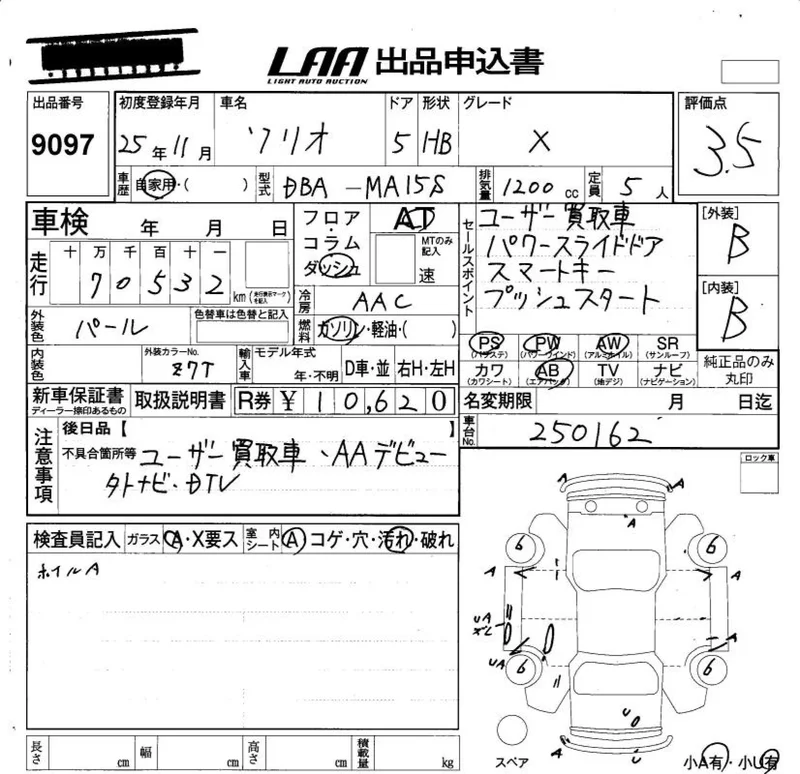 LAA 出品申込書
LIGHT AUTO AUCTION
出品番号 9097
初度登録年月 25年11月
車名 ソリオ
ドア 5
形状 HB
グレード X
評価点 3.5
車歴 自家用・( )
型式 DBA-MA15S
排気量 1200cc
定員 5人
車検 年 月 日
走行 十 万 千 百 十 一
70532 km (走行表示マークを記入)
フロア・コラム・ダッシュ
AT
MTのみ記入 速
冷房 AAC
燃料 ガソリン・軽油・( )
セールスポイント
ユーザー買取車
パワースライドドア
スマートキー
プッシュスタート
[外装] B
[内装] B
外装色 パール
色替車は色替と記入
内装色
外装カラーNo. Z7T
輸入車 モデル年式 年・不明 D車・並 右H・左H
PS (パワステ) PW (パワーウインド) AW (アルミホイル) SR (サンルーフ)
カワ (カワシート) AB (エアバッグ) TV (地デジ) ナビ (ナビゲーション)
純正品のみ丸印
新車保証書 ディーラー捺印あるもの
取扱説明書
R券 ¥ 10,620
名変期限 月 日迄
車台No. 250162
注意事項
後日品【 】
不具合箇所等 ユーザー買取車、AAデビュー
外ナビ・DTV
ロック車
検査員記入 ガラス A・X要ス 室内シート A コゲ・穴・汚れ・破れ
ホイルA
A A
A
6 6
A A
UA
A
UA
6 6
U
A U
スペア
小A有・小U有
長さ cm 幅 cm 高さ cm 積載量 kg